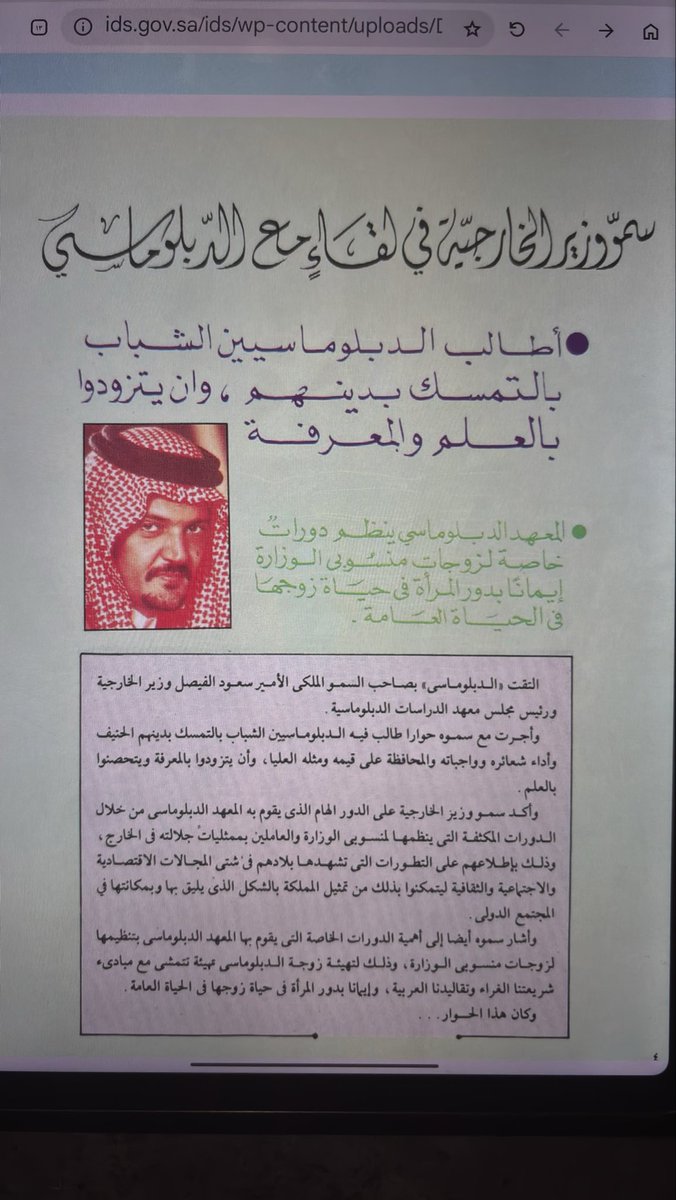 ids.gov.sa/ids/wp-content/uploads/D
١٣
سمو وزير الخارجية في لقاءٍ مع الدّبلوماسي
● أطالب الدبلوماسيين الشباب
بالتمسك بدينهم ، وان يتزودوا
بالعلم والمعرفة
● المعهد الدبلوماسي ينظم دورات
خاصة لزوجات منسوبى الوزارة
إيمانًا بدور المرأة فى حياة زوجها
فى الحياة العامة .
التقت «الدبلوماسى» بصاحب السمو الملكى الأمير سعود الفيصل وزير الخارجية
ورئيس مجلس معهد الدراسات الدبلوماسية .
وأجرت مع سموه حوارا طالب فيه الدبلوماسيين الشباب بالتمسك بدينهم الحنيف
وأداء شعائره وواجباته والمحافظة على قيمه ومثله العليا، وأن يتزودوا بالمعرفة ويتحصنوا
بالعلم .
وأكد سمو وزيز الخارجية على الدور الهام الذى يقوم به المعهد الدبلوماسى من خلال
الدورات المكثفة التى ينظمها لمنسوبى الوزارة والعاملين بممثليات جلالته فى الخارج ،
وذلك بإطلاعهم على التطورات التى تشهدها بلادهم فى شتى المجالات الاقتصادية
والاجتماعية والثقافية ليتمكنوا بذلك من تمثيل المملكة بالشكل الذى يليق بها وبمكانتها في
المجتمع الدولى .
وأشار سموه أيضا إلى أهمية الدورات الخاصة التى يقوم بها المعهد الدبلوماسى بتنظيمها
لزوجات منسوبى الوزارة ، وذلك لتهيئة زوجة الدبلوماسى تهيئة تتمشى مع مبادىء
شريعتنا الغراء وتقاليدنا العربية ، وإيمانا بدور المرأة فى حياة زوجها فى الحياة العامة .
وكان هذا الحوار . . .
٤